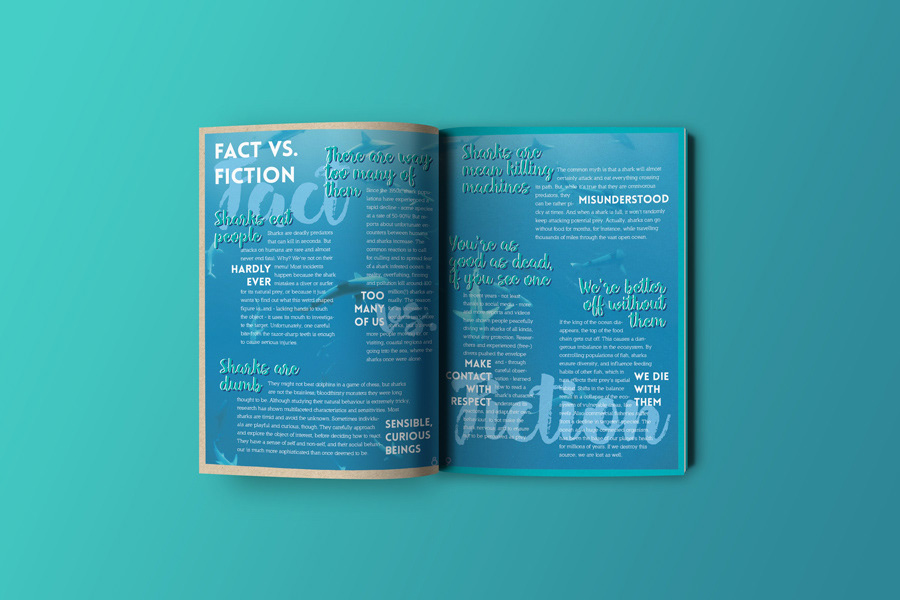 FACT VS.
FICTION
fact
Sharks eat
people
Sharks are deadly predators
that can kill in seconds. But
attacks on humans are rare and almost
never end fatal. Why? We're not on their
menu! Most incidents
happen because the shark
mistakes a diver or surfer
for its natural prey, or because it just
wants to find out what this weird shaped
figure is and - lacking hands to touch
the object - it uses its mouth to investiga-
te the target. Unfortunately, one careful
bite from the razor-sharp teeth is enough
to cause serious injuries.
HARDLY
EVER
Sharks are
dumb
They might not beat dolphins in a game of chess, but sharks
are not the brainless, bloodthirsty monsters they were long
thought to be. Although studying their natural behaviour is extremely tricky,
research has shown multifaceted characteristics and sensitivities. Most
sharks are timid and avoid the unknown. Sometimes individu-
als are playful and curious, though. They carefully approach
and explore the object of interest, before deciding how to react.
They have a sense of self and non-self, and their social behavi-
our is much more sophisticated than once deemed to be.
SENSIBLE,
CURIOUS
BEINGS
There are way
too many of
them
Since the 1950s, shark popu-
lations have experienced a
rapid decline - some species
at a rate of 50-90%! But re-
ports about unfortunate en-
counters between humans
and sharks increase. The
common reaction is to call
for culling and to spread fear
of a shark infested ocean. In
reality, overfishing, finning
and pollution kill around 100
million(!) sharks an-
nually. The reason
more people
visiting coastal regions and
going into the sea, where the
sharks once were alone.
TOO
MANY
OF US
vs.
Sharks are
mean killing
machines
The common myth is that a shark will almost
certainly attack and eat everything crossing
its path. But while it's true that they are omnivorous
predators, they
can be rather pi-
cky at times. And when a shark is full, it won't randomly
keep attacking potential prey. Actually, sharks can go
without food for months, for instance, while travelling
thousands of miles through the vast open ocean.
MISUNDERSTOOD
You're as
good as dead,
if you see one
In recent years - not least
thanks to social media - more
and more reports and videos
have shown people peacefully
diving with sharks of all kinds,
without any protection. Resear-
chers and experienced (free-)
divers pushed the envelope
and - through
careful obser-
vation - learned
how to read a
shark's
MAKE
CONTACT
WITH
RESPECT
We're better
off without
them
If the king of the ocean dis-
appears, the top of the food
chain gets cut off. This causes a dan-
gerous imbalance in the ecosystem. By
controlling populations of fish, sharks
ensure diversity, and influence feeding
habits of other fish, which in
turn affects their prey's spatial
in the balance
result in a collapse of the eco-
for millions of years. If we destroy this
source, we are lost as well.
WE DIE
WITH
THEM
fiction